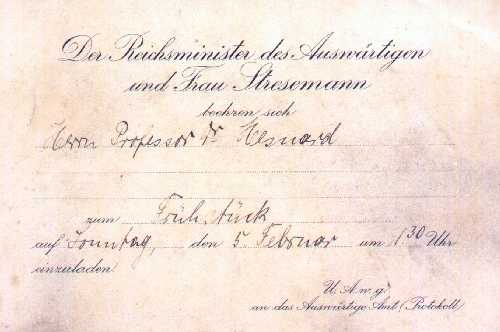 Der Reichsminister des Auswärtigen
und Frau Stresemann
beehren sich
Herrn Professor Dr Hesnard
zum Frühstück
auf Sonntag, den 5. Februar um 1³⁰ Uhr
einzuladen
U. A. w. g.
an das Auswärtige Amt (Protokoll)